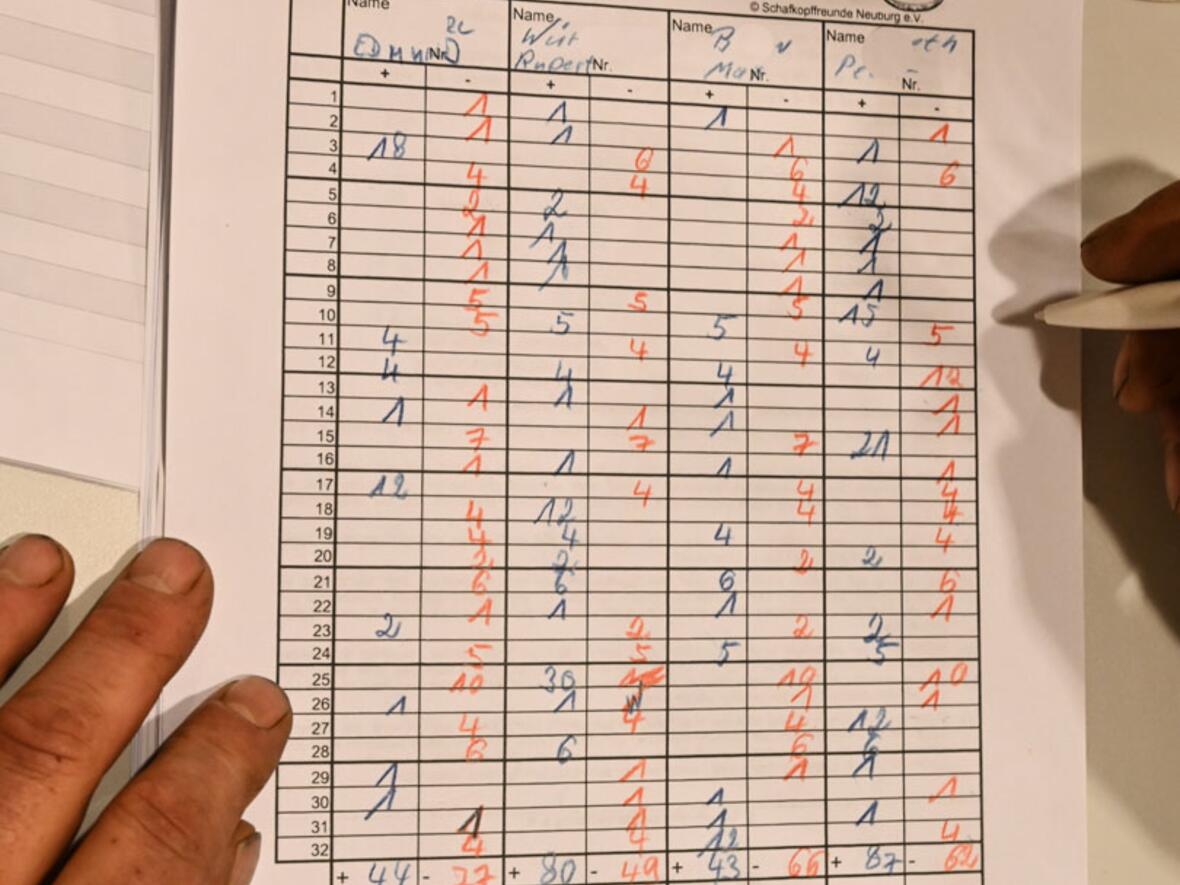 © Schafkopffreunde Neuburg e.V.
Name Name Name Name
Wirt B
EDMUND Nr. Rupert Nr. Nr. Pe. Nr.
+ - + - + - + -
1 1 1 1 1
2 1 1 1 1
3 18 6 6 6
4 4 4 4 12
5 2 2 2 2
6 1 1 1 1
7 1 1 1 1
8 1 1 1 1
9 5 5 5 15
10 5 5 5 5
11 4 4 4 4
12 4 4 4 12
13 1 1 1 1
14 1 1 1 1
15 7 7 7 21
16 1 1 1 1
17 12 4 4 4
18 4 12 4 4
19 4 4 4 4
20 2 2 2 2
21 6 6 6 6
22 1 1 1 1
23 2 2 2 2
24 5 5 5 5
25 10 30 10 10
26 1 1 1 1
27 4 4 4 12
28 6 6 6 6
29 1 1 1 1
30 1 1 1 1
31 1 1 1 1
32 4 4 12 4
+ 44 - 77 + 80 - 49 + 43 - 66 + 87 - 62